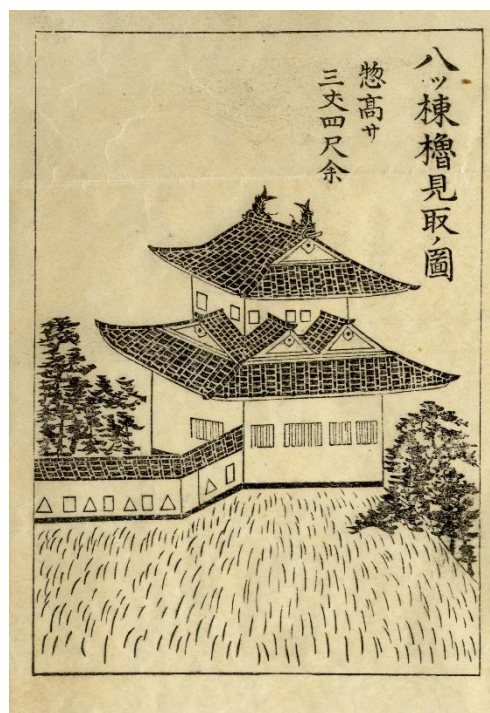 八ッ棟櫓見取ノ圖
惣高サ
三丈四尺余